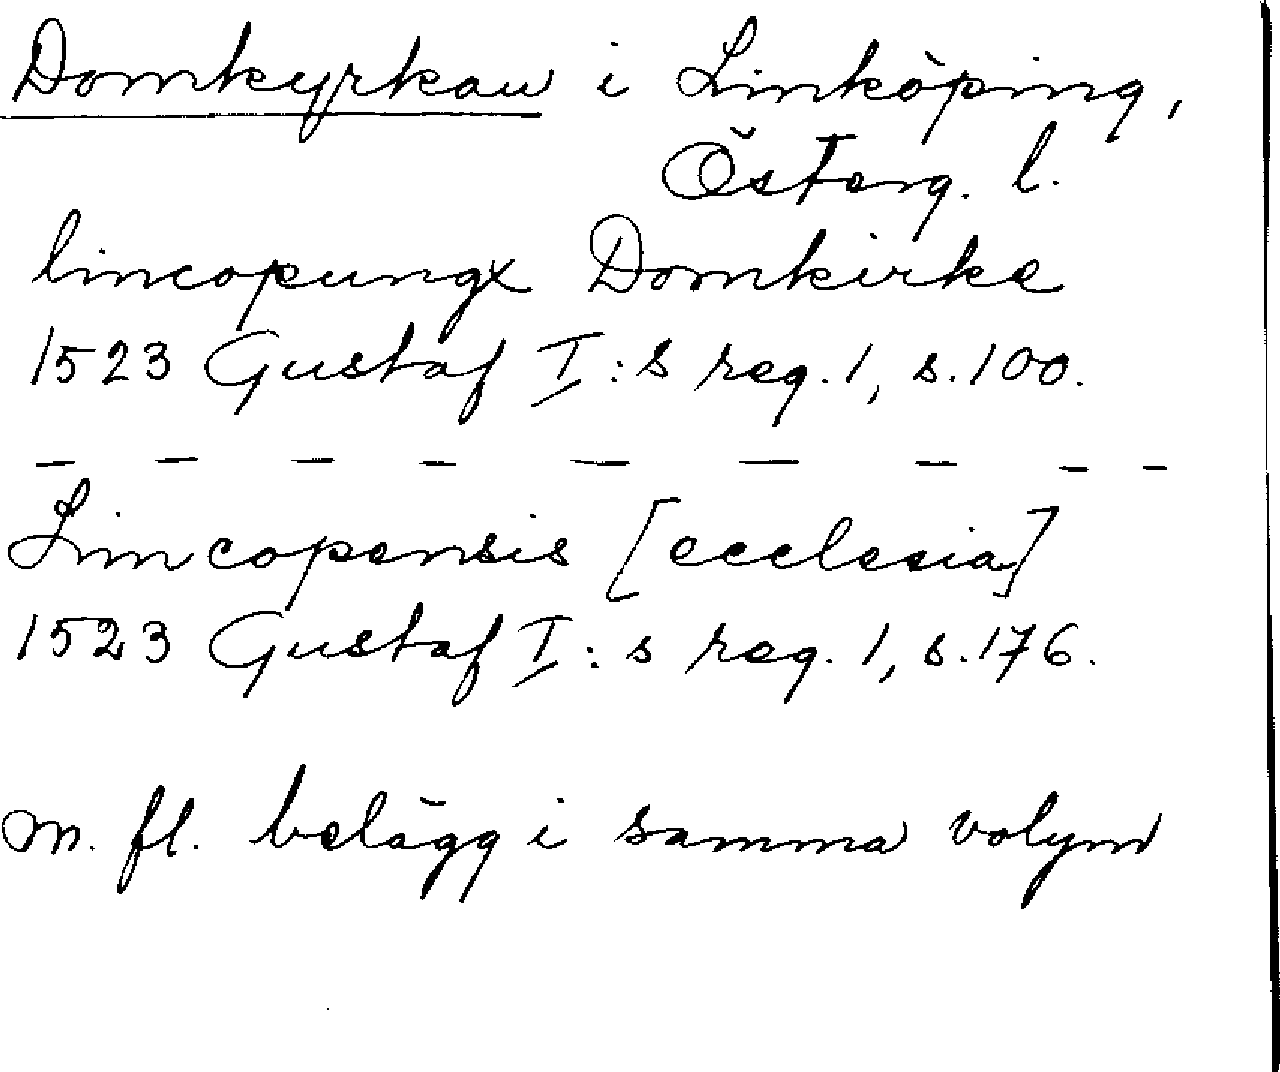 Domkyrkan i Linköping,
Österg. l.
lincopungx Domkirke
1523 Gustaf I:s reg. 1, s. 100.
– – – – – – – – –
Lincopensis [ecclesia]
1523 Gustaf I:s reg. 1, s. 176.
m. fl. belägg i samma volym